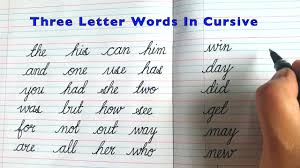 Three Letter Words In Cursive
the his can him win
and one use has day
you had she two did
was but how see get
for not out way may
are all her who new